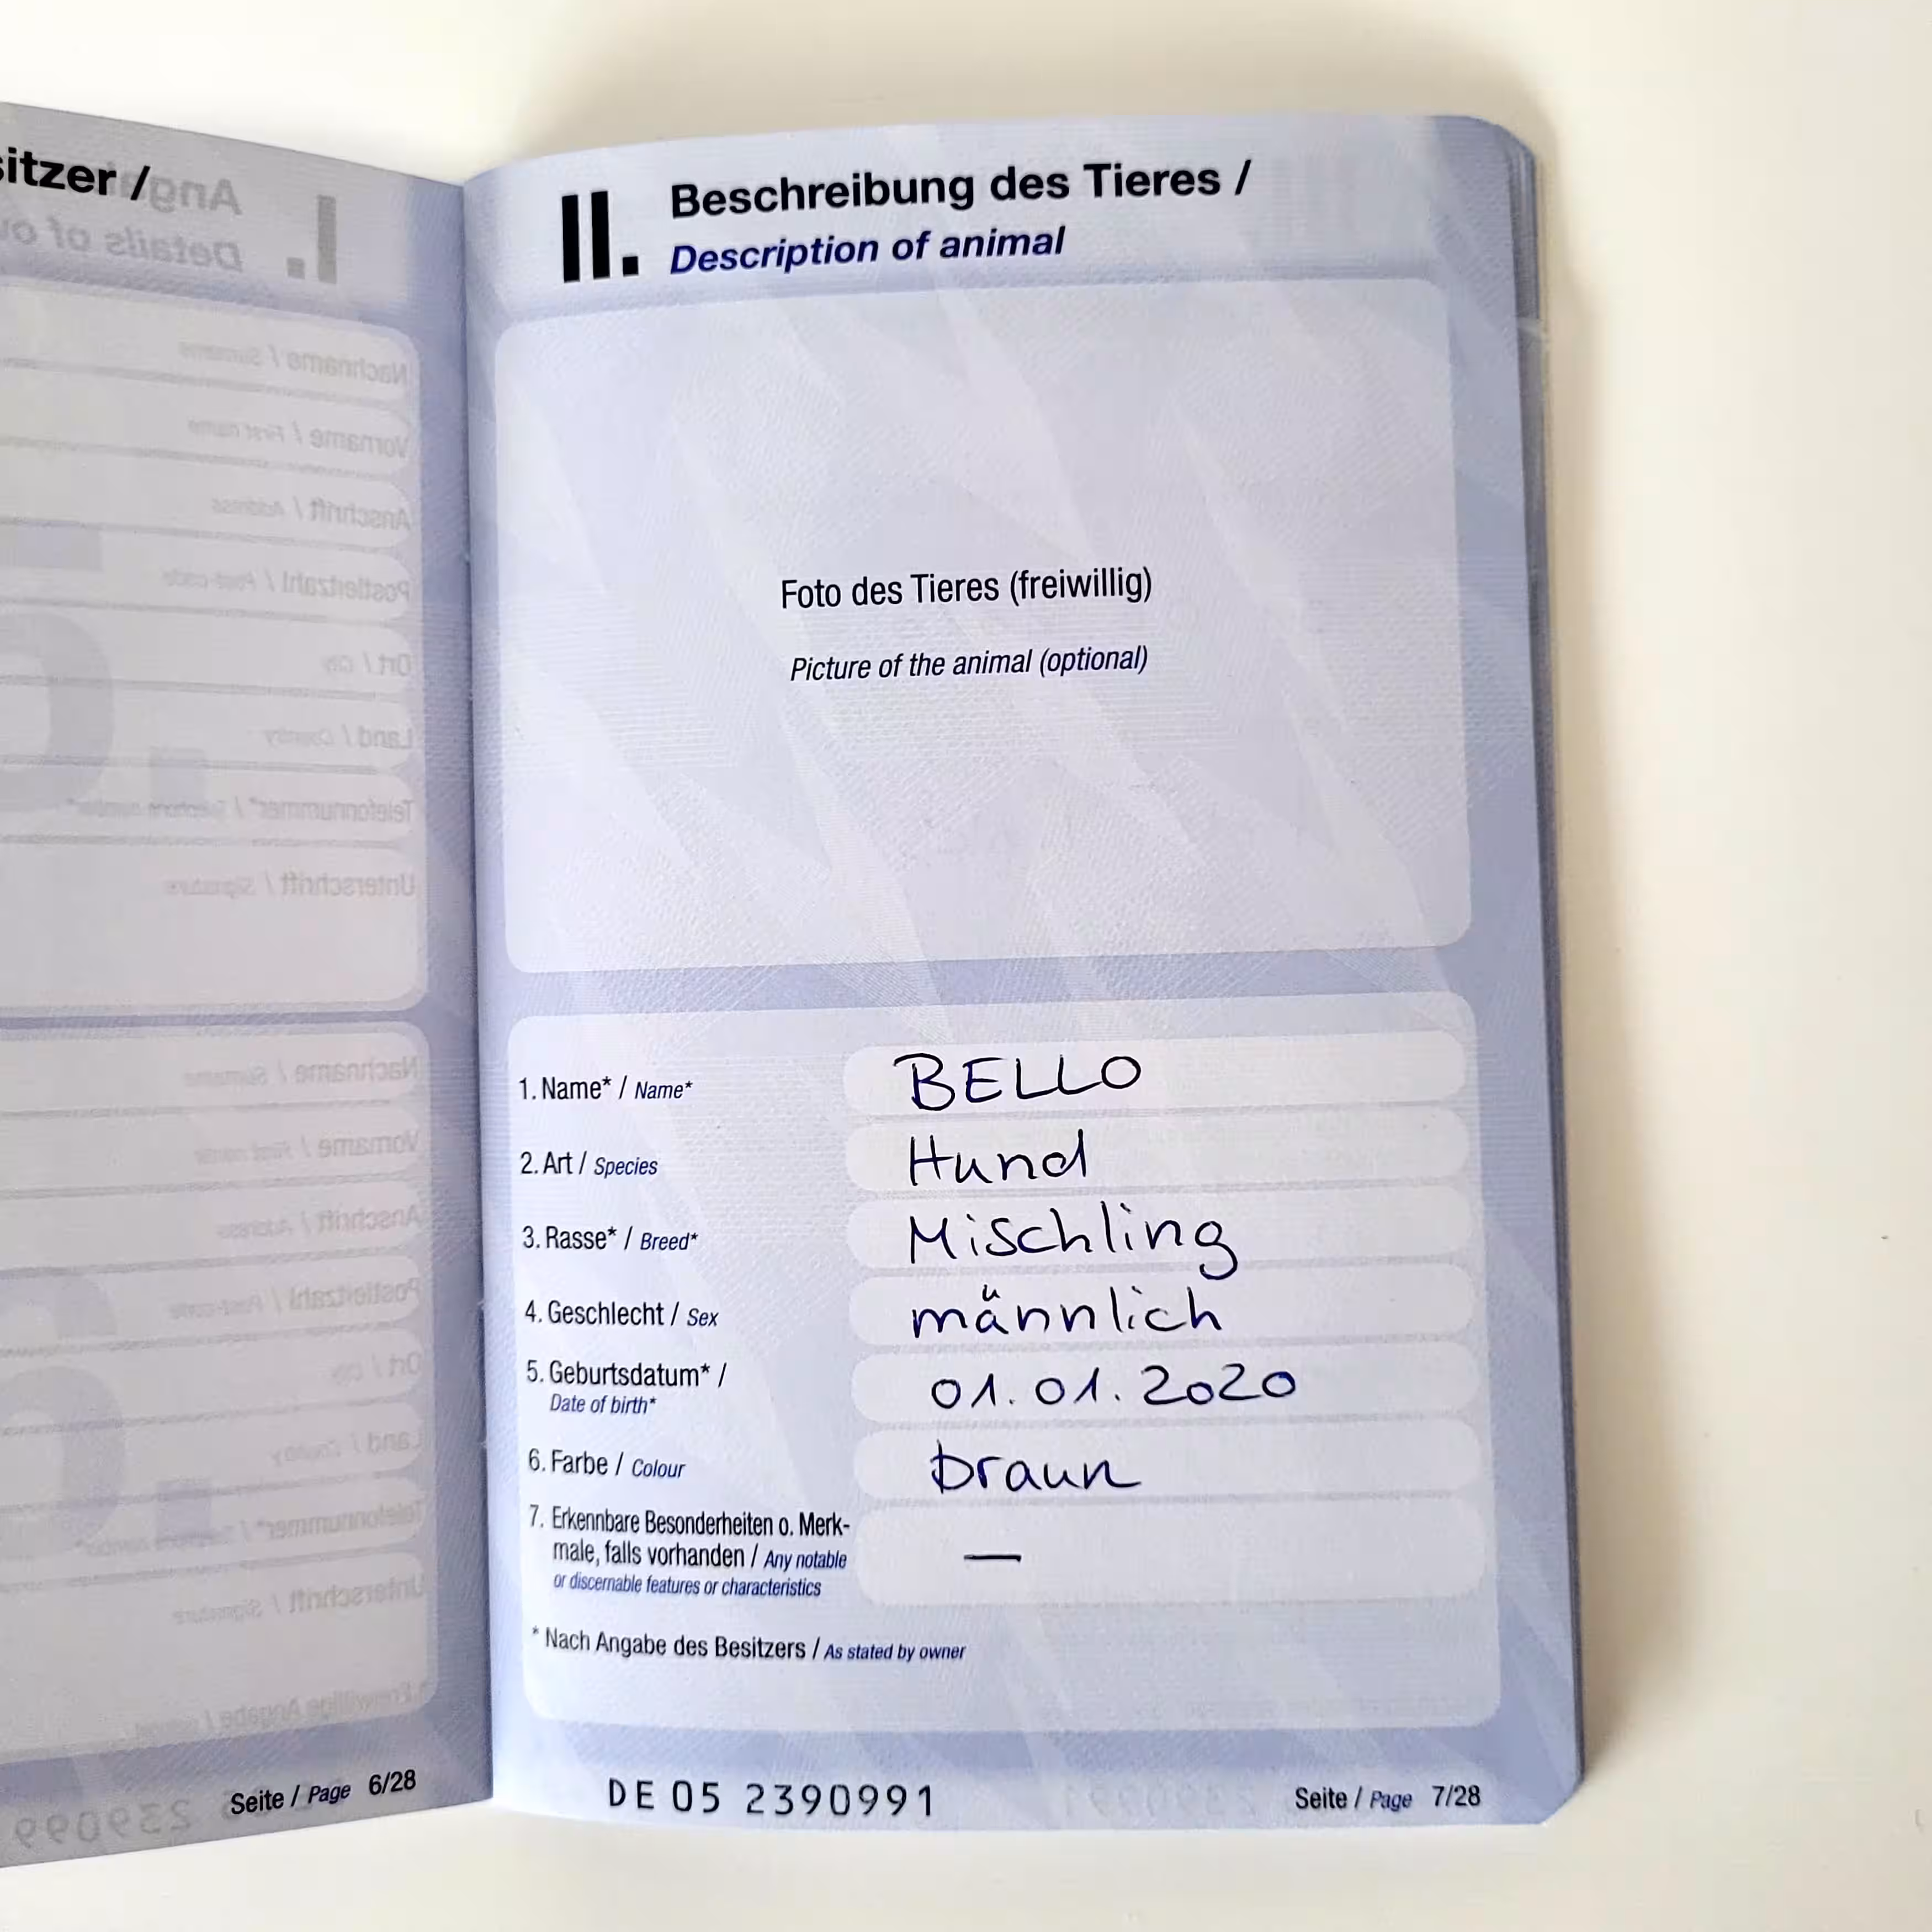 sitzer /
Seite / Page 6/28
II. Beschreibung des Tieres /
Description of animal
Foto des Tieres (freiwillig)
Picture of the animal (optional)
1. Name* / Name* BELLO
2. Art / Species Hund
3. Rasse* / Breed* Mischling
4. Geschlecht / Sex männlich
5. Geburtsdatum* / 01.01.2020
Date of birth*
6. Farbe / Colour braun
7. Erkennbare Besonderheiten o. Merk-
male, falls vorhanden / Any notable —
or discernable features or characteristics
* Nach Angabe des Besitzers / As stated by owner
DE 05 2390991 Seite / Page 7/28